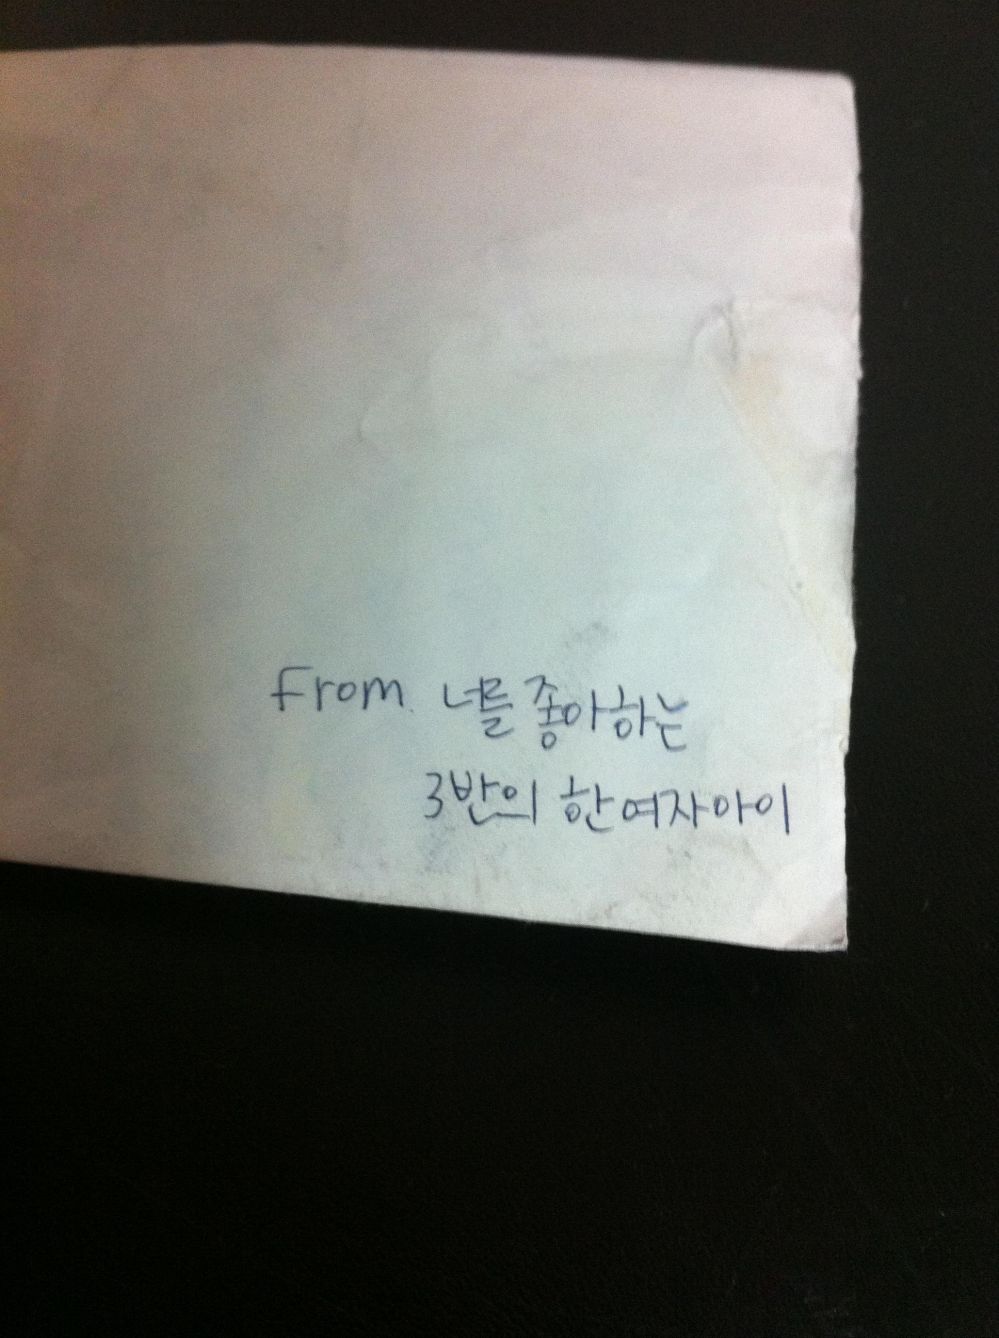 From. 너를 좋아하는
3반의 한 여자아이